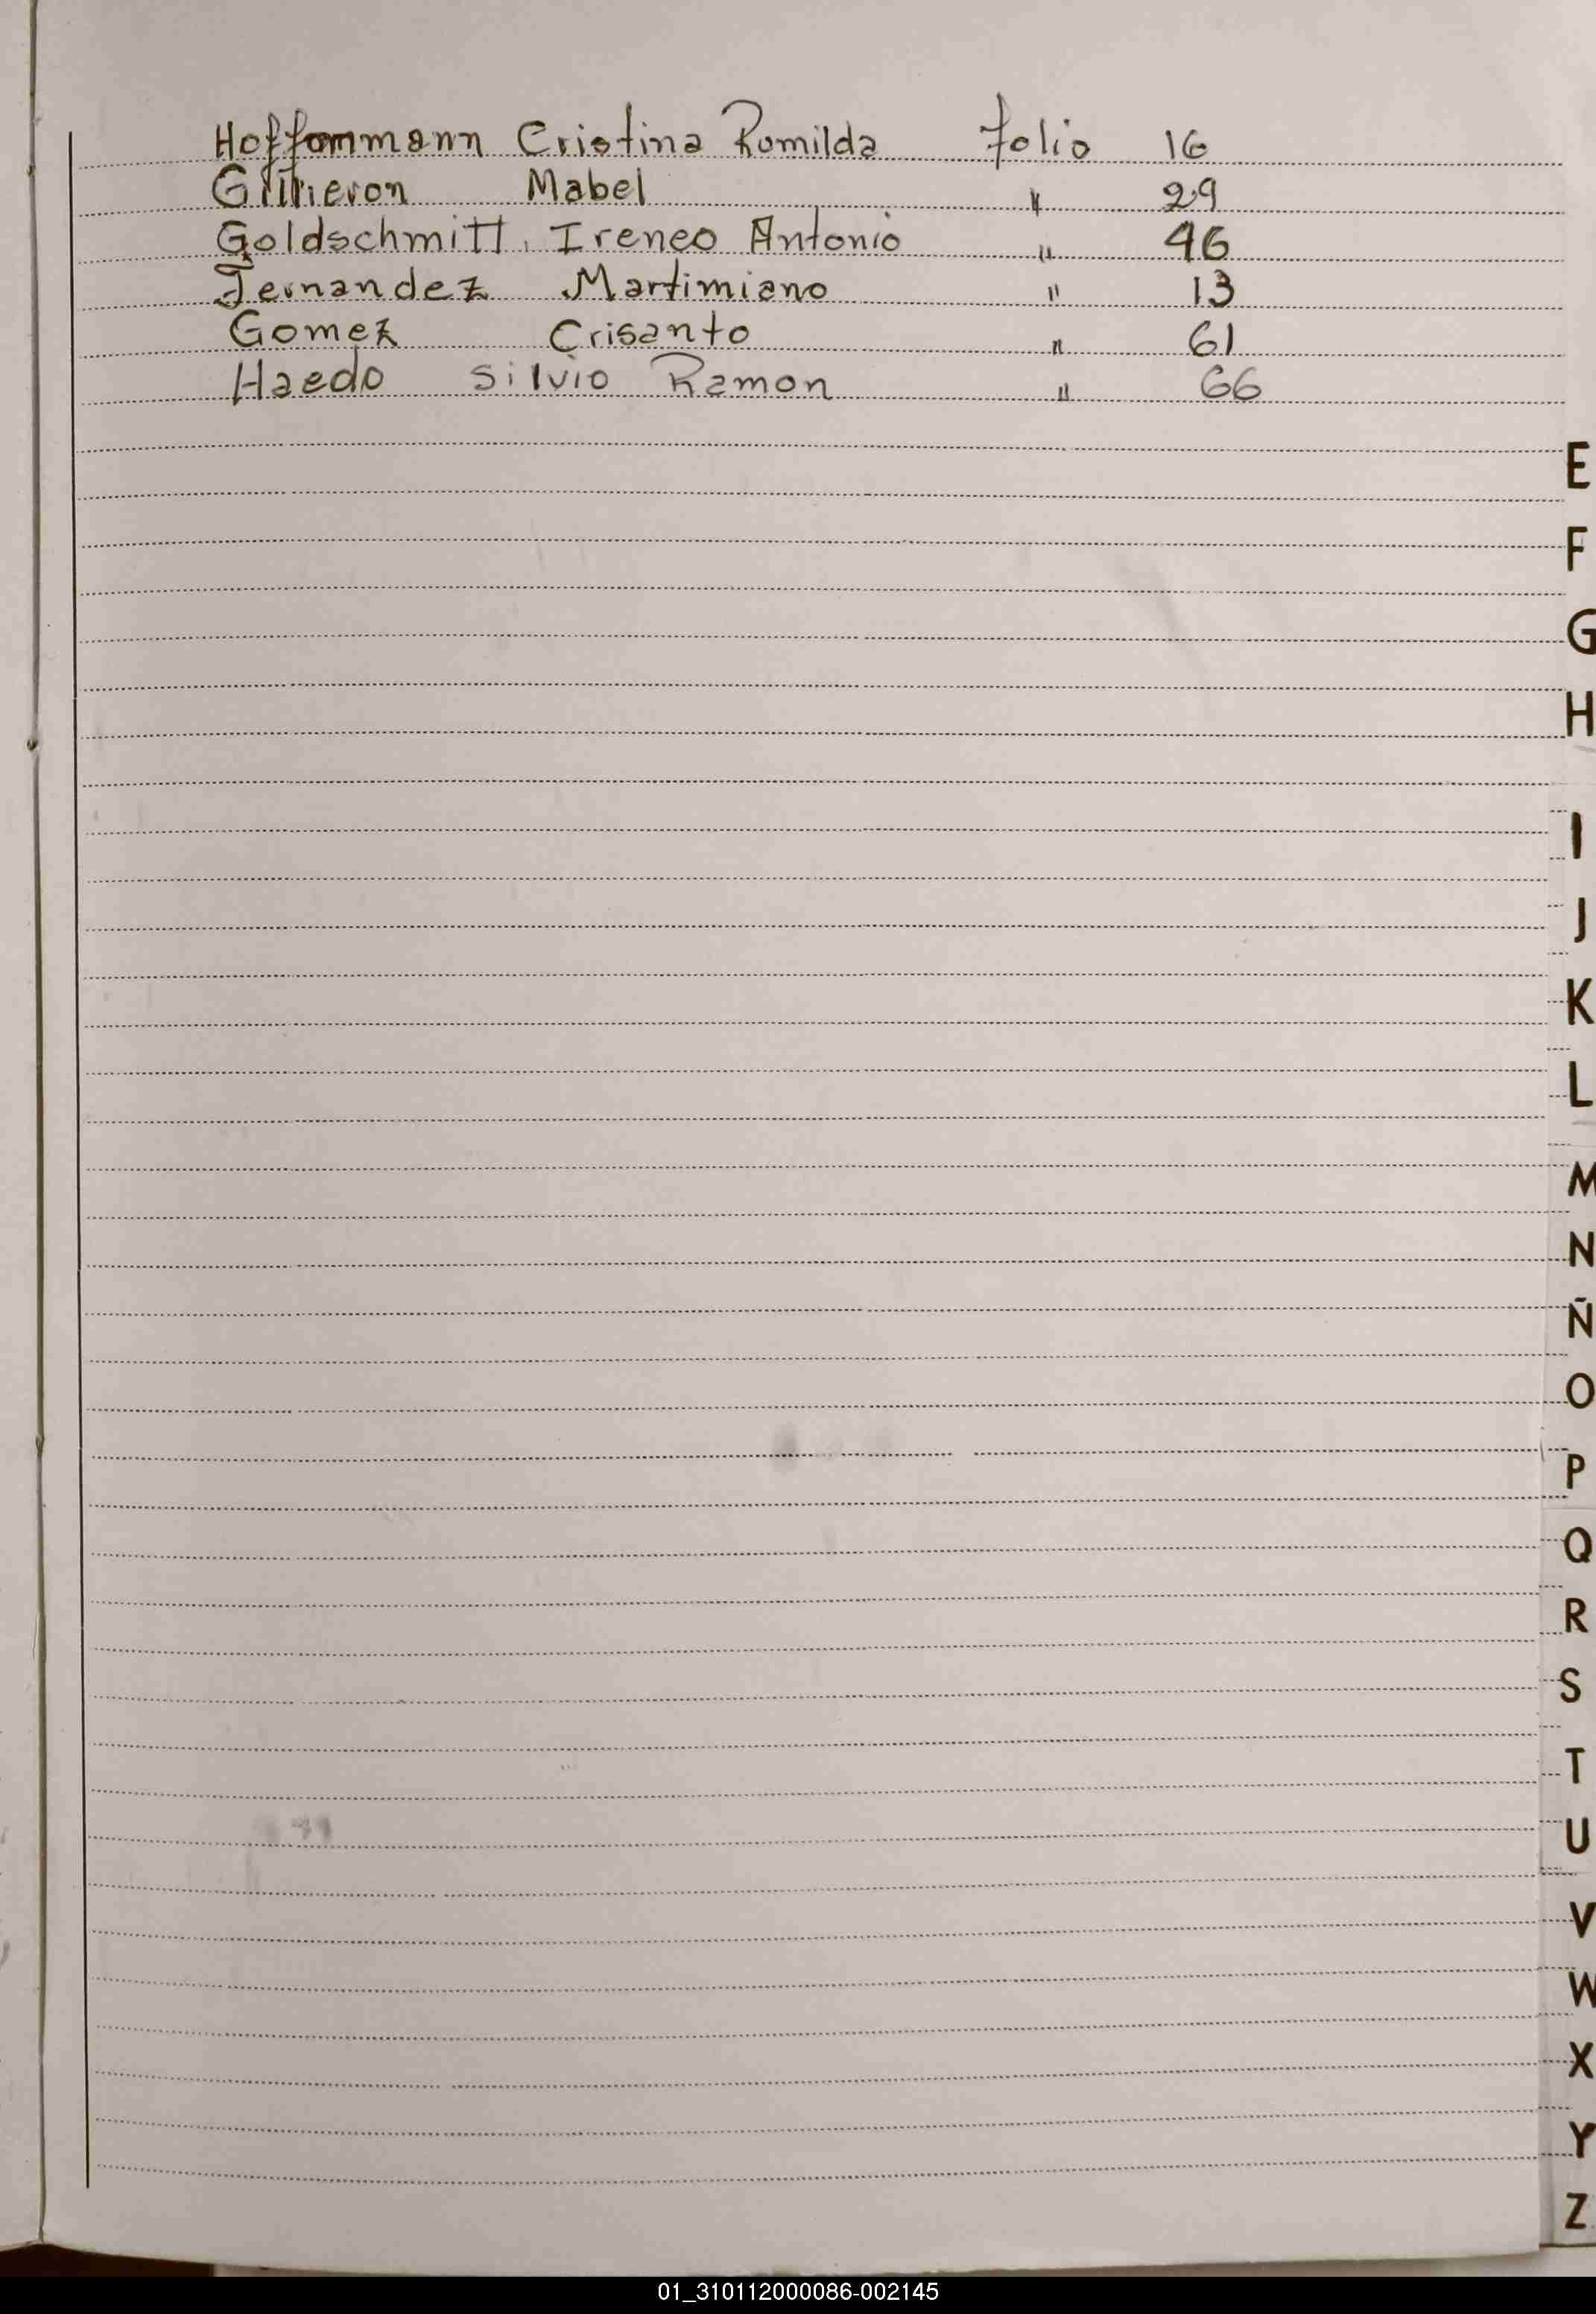 Hoffommann Cristina Romilda folio 16
Gillieron Mabel " 29
Goldschmitt, Ireneo Antonio " 46
Fernandez Martimiano " 13
Gomez Crisanto " 61
Haedo Silvio Ramon " 66
E
F
G
H
I
J
K
L
M
N
Ñ
O
P
Q
R
S
T
U
V
W
X
Y
Z
01_310112000086-002145